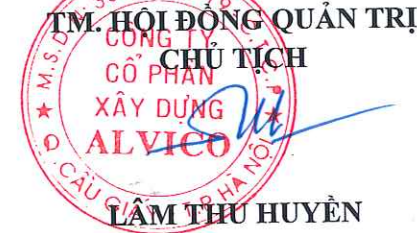 TM. HỘI ĐỒNG QUẢN TRỊ
CHỦ TỊCH
CÔNG TY
CỔ PHẦN
XÂY DỰNG
ALVICO
Q. CẦU GIẤY - T.P HÀ NỘI
LÂM THU HUYỀN